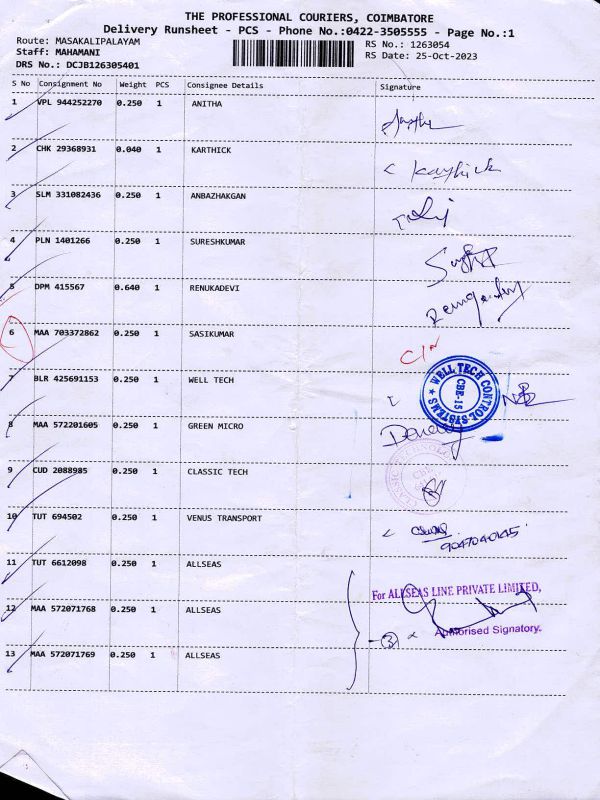 THE PROFESSIONAL COURIERS, COIMBATORE
Delivery Runsheet - PCS - Phone No.:0422-3505555 - Page No.:1
Route: MASAKALIPALAYAM RS No.: 1263054
Staff: MAHAMANI RS Date: 25-Oct-2023
DRS No.: DCJB126305401
S No Consignment No Weight PCS Consignee Details Signature
1 VPL 944252270 0.250 1 ANITHA
2 CHK 29368931 0.040 1 KARTHICK Karthick
3 SLM 331082436 0.250 1 ANBAZHAKGAN
4 PLN 1401266 0.250 1 SURESHKUMAR
5 DPM 415567 0.640 1 RENUKADEVI
6 MAA 703372862 0.250 1 SASIKUMAR
7 BLR 425691153 0.250 1 WELL TECH
WELL TECH CONTROL SYSTEMS
CBE-15
8 MAA 572201605 0.250 1 GREEN MICRO
9 CUD 2088985 0.250 1 CLASSIC TECH
10 TUT 694502 0.250 1 VENUS TRANSPORT
11 TUT 6612098 0.250 1 ALLSEAS
For ALLSEAS LINE PRIVATE LIMITED,
12 MAA 572071768 0.250 1 ALLSEAS
3 Authorised Signatory.
13 MAA 572071769 0.250 1 ALLSEAS